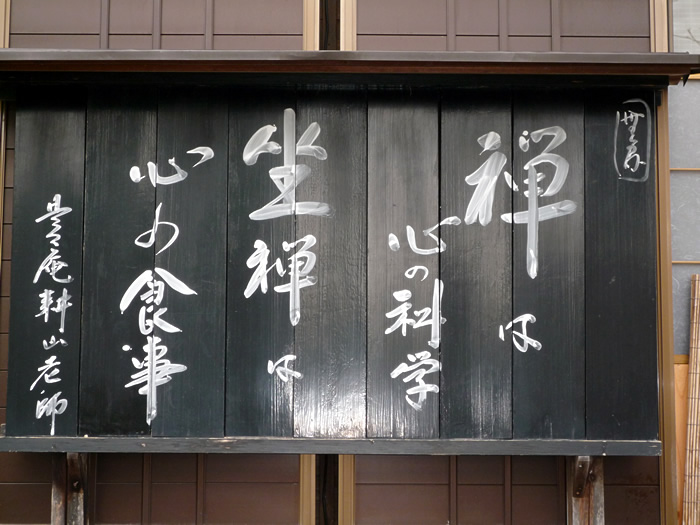 禅は
心の科学
坐禅は
心の食事
是々庵耕山老師